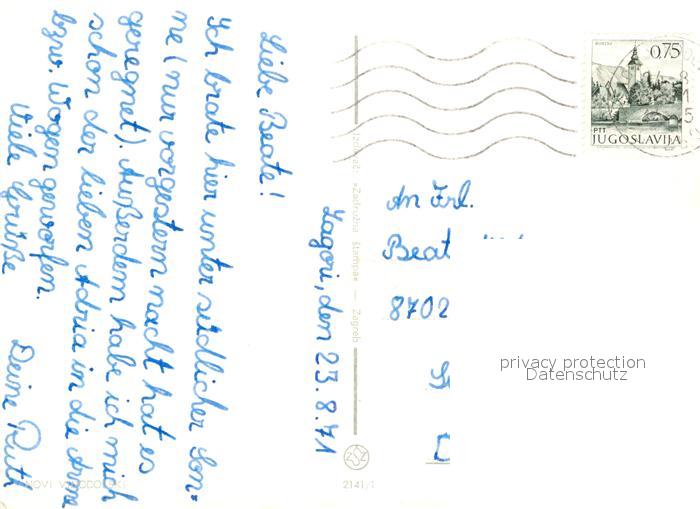 Zagori, den 23.8.71
Liebe Beate!
Ich brate hier unter südlicher Son-
ne (nur vorgestern nacht hat es
geregnet). Außerdem habe ich mich
schon der lieben Adria in die Arme
bzw. Wogen geworfen.
Viele Grüße Deine Ruth
NOVI VINODOLSKI
Izdavač: »Zadružna štampa« — Zagreb
2141/1
0,75
PTT
JUGOSLAVIJA
An Frl.
Beat
8702
privacy protection
Datenschutz